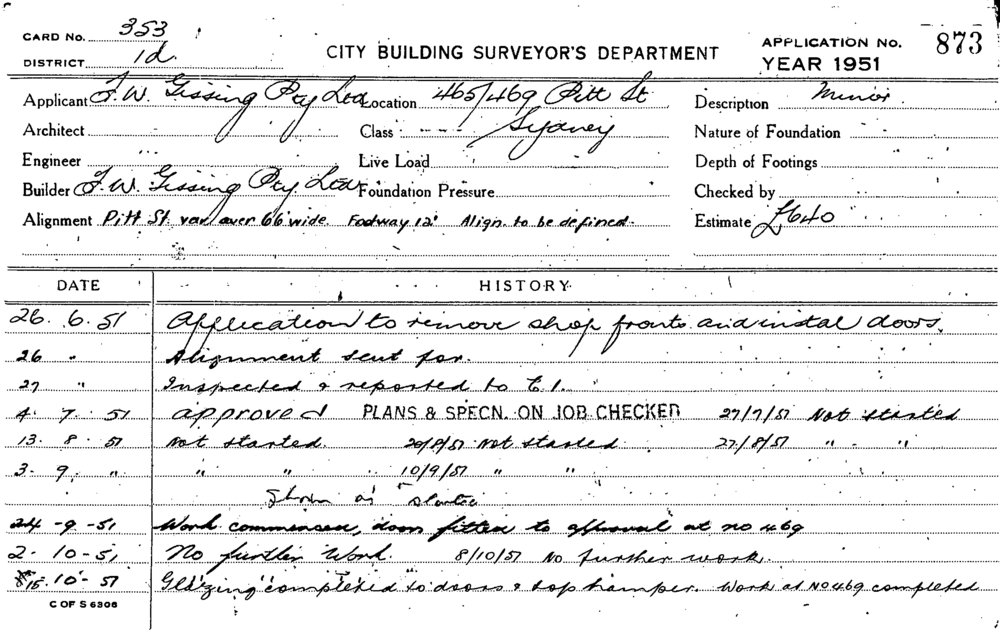 CARD No. 353
DISTRICT 1d.
CITY BUILDING SURVEYOR'S DEPARTMENT
APPLICATION No. 873
YEAR 1951
Applicant F. W. Gissing Pty Ltd Location 465/469 Pitt St Description Minor
Architect Class Sydney Nature of Foundation
Engineer Live Load Depth of Footings
Builder F. W. Gissing Pty Ltd Foundation Pressure Checked by
Alignment Pitt St. var. over 66' wide. Footway 12' Align. to be defined. Estimate £640
DATE HISTORY
26. 6. 51 Application to remove shop fronts and instal doors.
26 " Alignment sent for.
27 " Inspected & reported to C.I.
4. 7. 51 approved PLANS & SPECN. ON JOB CHECKED 27/7/51 Not started
13. 8. 51 Not started. 20/8/51 Not started 27/8/51 " "
3. 9. " " " 10/9/51 " "
Shown as started
24 -9 -51 Work commenced, doors fitted to approval at no 469
2. 10-51 No further work. 8/10/51 No further work.
15. 10- 51 Glazing completed to doors & top hamper. Work at No 469 completed
C OF S 6306